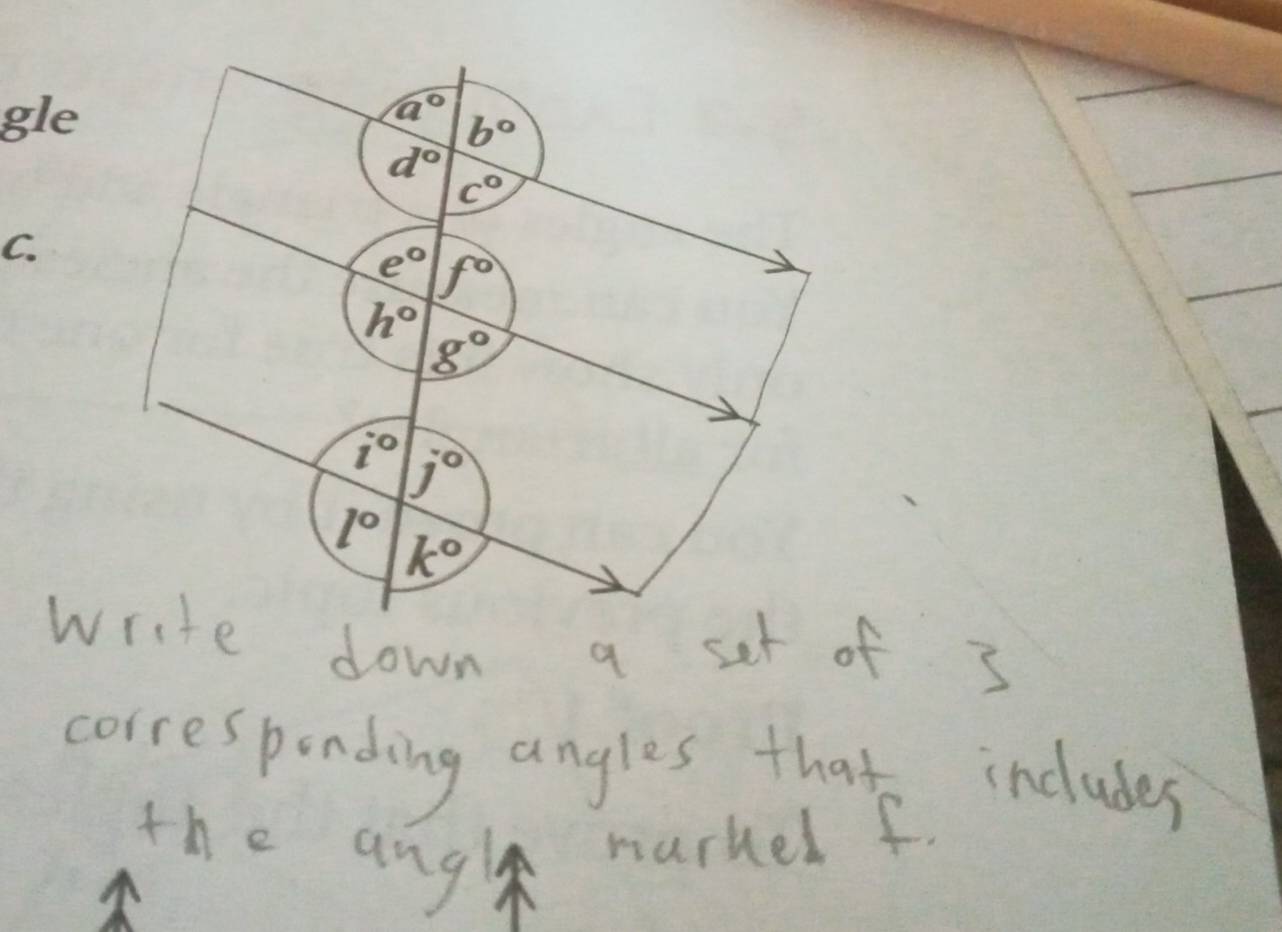 gle
c.
a° b°
d° c°
e° f°
h° g°
i° j°
l° k°
Write down a set of 3
corresponding angles that includes
the angle marked f.